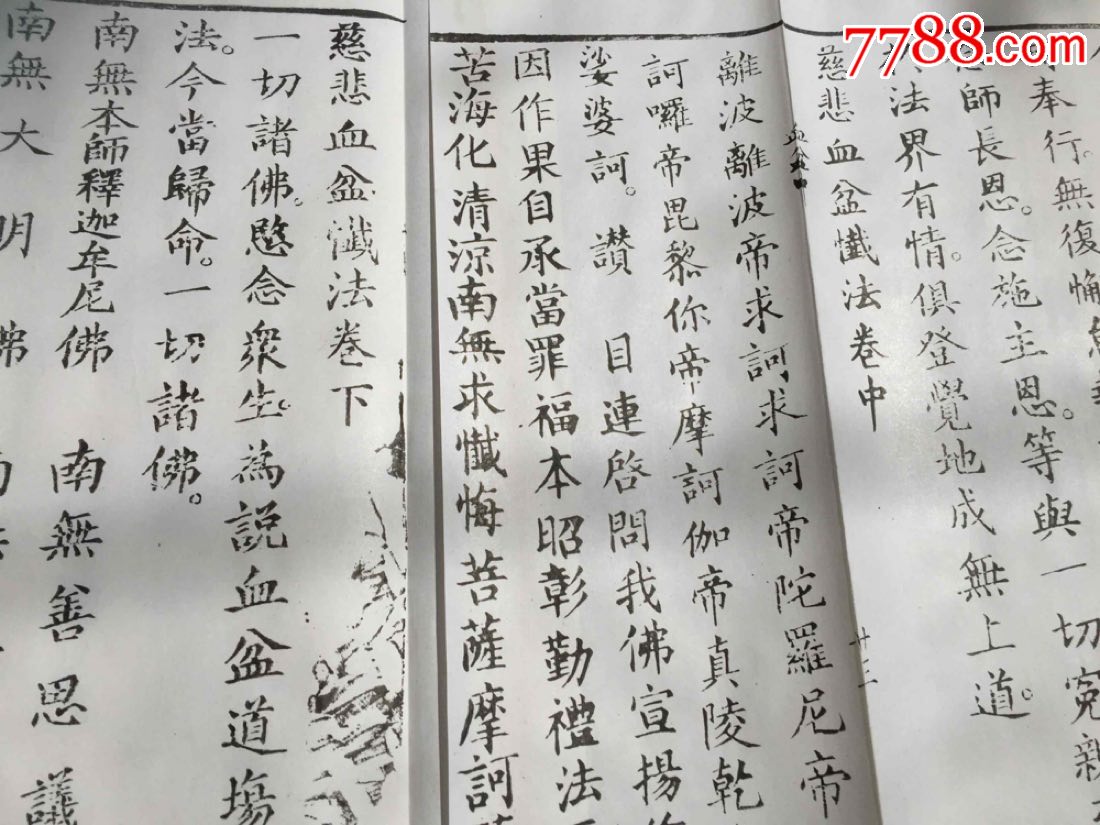 7788.com
奉行。無復懈
師長恩。念施主恩。等與一切冤親
法界有情。俱登覺地成無上道。
慈悲血盆懺法卷中
廿三
離波離波帝求訶求訶帝陀羅尼帝
訶囉帝毘黎你帝摩訶伽帝真陵乾
娑婆訶。讃 目連啓問我佛宣揚
因作果自承當罪福本昭彰勤禮法
苦海化清涼南無求懺悔菩薩摩訶
慈悲血盆懺法卷下
一切諸佛。愍念衆生。為説血盆道塲
法。今當歸命。一切諸佛。
南無本師釋迦牟尼佛 南無善思議
南無大明佛